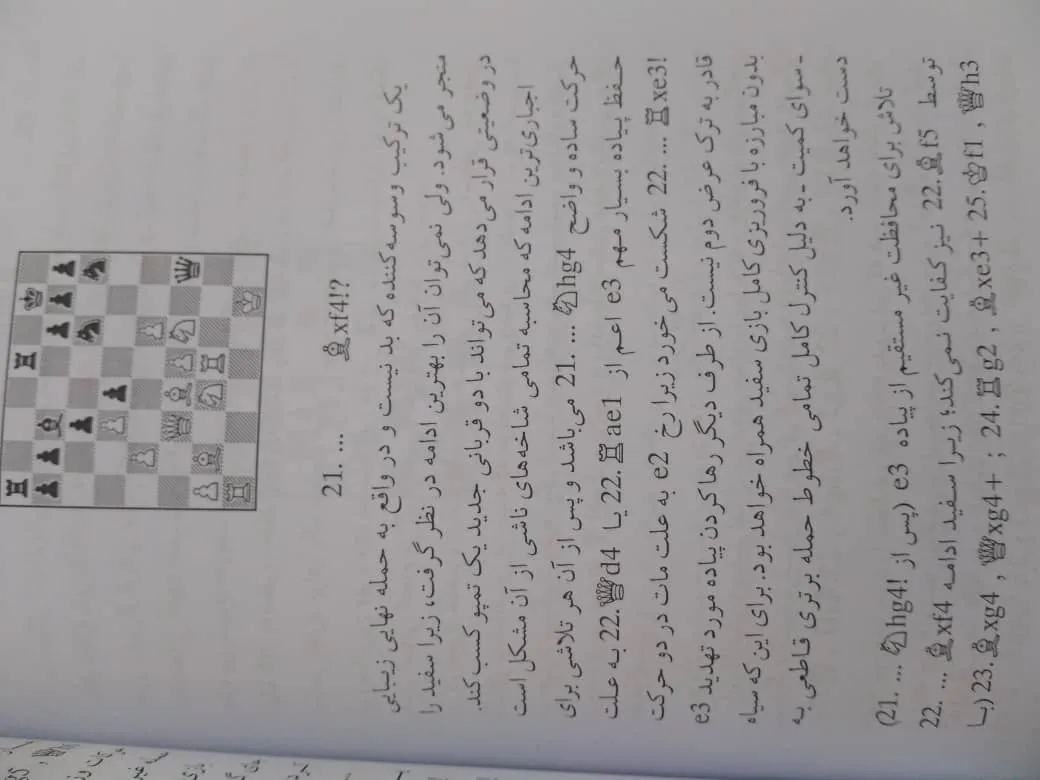 21. ... ♗xf4!?
یک ترکیب وسوسه کننده که بد نیست و در واقع به حمله نهایی زیبایی
منجر می‌شود. ولی نمی‌توان آن را بهترین ادامه در نظر گرفت، زیرا سفید را
در وضعیتی قرار می‌دهد که می‌تواند با دو قربانی جدید یک تمپو کسب کند.
اجباری‌ترین ادامه که محاسبه تمامی شاخه‌های ناشی از آن مشکل است
حرکت ساده و واضح 21. ... ♘hg4 می‌باشد و پس از آن هر تلاشی برای
حفظ پیاده بسیار مهم e3 اعم از 22.♖ae1 یا 22.♕d4 به علت
22. ... ♖xe3! شکست می‌خورد زیرا رخ e2 به علت مات در دو حرکت
قادر به ترک عرض دوم نیست. از طرف دیگر رها کردن پیاده مورد تهدید e3
بدون مبارزه با فروریزی کامل بازی سفید همراه خواهد بود. برای این که سیاه
- سوای کمیت - به دلیل کنترل کامل تمامی خطوط حمله برتری قاطعی به
دست خواهد آورد.
تلاش برای محافظت غیر مستقیم از پیاده e3 (پس از 21. ... ♘hg4!)
توسط 22.♗f5 نیز کفایت نمی‌کند؛ زیرا سفید ادامه 22. ... ♗xf4
(با 23.♗xg4 , ♕xg4+ ; 24.♖g2 , ♗xe3+ 25.♔f1 , ♕h3